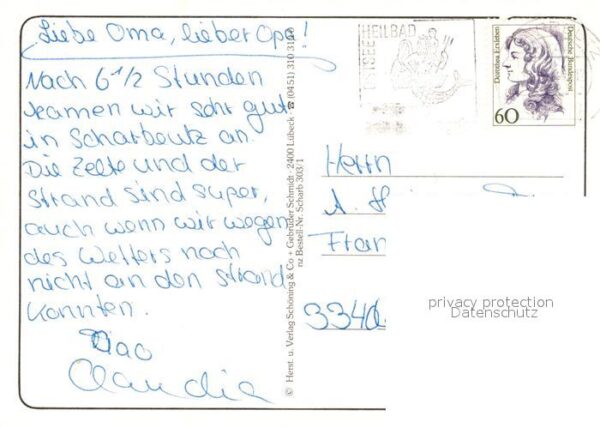 Liebe Oma, lieber Opa!
Nach 6 1/2 Stunden
kamen wir sehr gut
in Scharbeutz an.
Die Zelte und der
Strand sind super,
auch wenn wir wegen
des Wetters noch
nicht an den Strand
konnten.
Ciao
Claudia
© Herst. u. Verlag Schöning & Co + Gebrüder Schmidt · 2400 Lübeck · ☎ (0451) 310 31
nz Bestell-Nr. Scharb 303/1
OSTSEE
HEILBAD
Dorothea Erxleben
Deutsche Bundespost
60
Herrn
A.
Fran
3340
privacy protection
Datenschutz